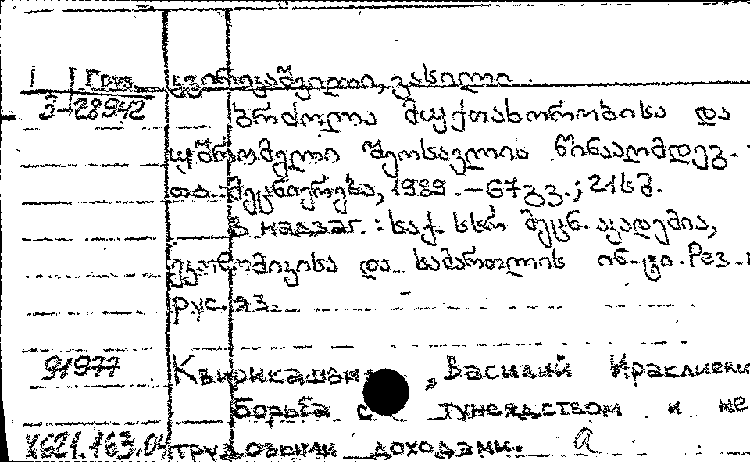 1 Груз. კვირიკაშვილი, ვასილი
3-28942 ბრძოლა მუქთახორობისა და
უშრომელი შემოსავლის წინააღმდეგ. -
თბ.: მეცნიერება, 1989. - 67 გვ.; 21 სმ.
В надзаг.: საქ. სსრ მეცნ. აკადემია,
ეკონომიკისა და სამართლის ინ-ტი. Рез.
рус. яз.
91977 Василий
борьба с тунеядством и не
X621.163.04 трудовыми доходами. a